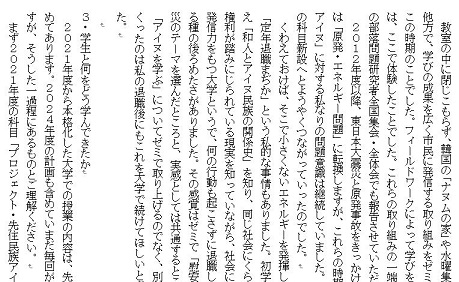 教室の中に閉じこもらず、韓国の「ナヌムの家」や水曜集
他方で、学びの成果を広く市民に発信する取り組みをゼミ
この時期のことでした。フィールドワークによって学びを
は、ここで体験したことでした。これらの取り組みの一端
の部落問題研究者全国集会・全体会でも報告させていただ
２０１２年度以降、東日本大震災と原発事故をきっかけ
は「原発・エネルギー問題」に転換しますが、これらの時期
アイヌ」に対する私なりの問題意識は継続していました。
の科目新設へとようやくつながっていったのでした。
くわえておけば、そこで小さくないエネルギーを発揮し
「定年退職まぢか」という私的な事情もありました。初学
え「和人とアイヌ民族の関係史」を知り、同じ社会にくら
権利が踏みにじられている現実を知っていながら、社会に
発信力をもつ大学というで、何の行動も起こさずに退職し
る種の後ろめたさがありました。その感覚はゼミで「慰安
災のテーマを選んだところと、実感としては共通するとこ
「アイヌを学ぶ」についてゼミで取り上げるのでなく、別
くったのは私の退職後にもこれを大学で続けてほしいと
た。
３・学生と何をどう学んできたか
２０２１年度から本格化した大学での授業の内容は、先
めてあります。２０２４年度の計画も含めていまだ毎回が
すが、そうした一過程にあるものとご理解ください。
まず２０２１年度の科目「プロジェクト・先住民族アイ